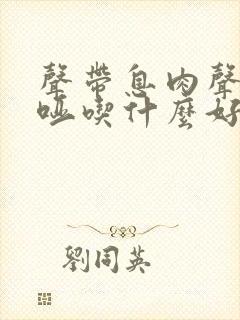 聲帶息肉聲
啞喫什麼好
劉同英